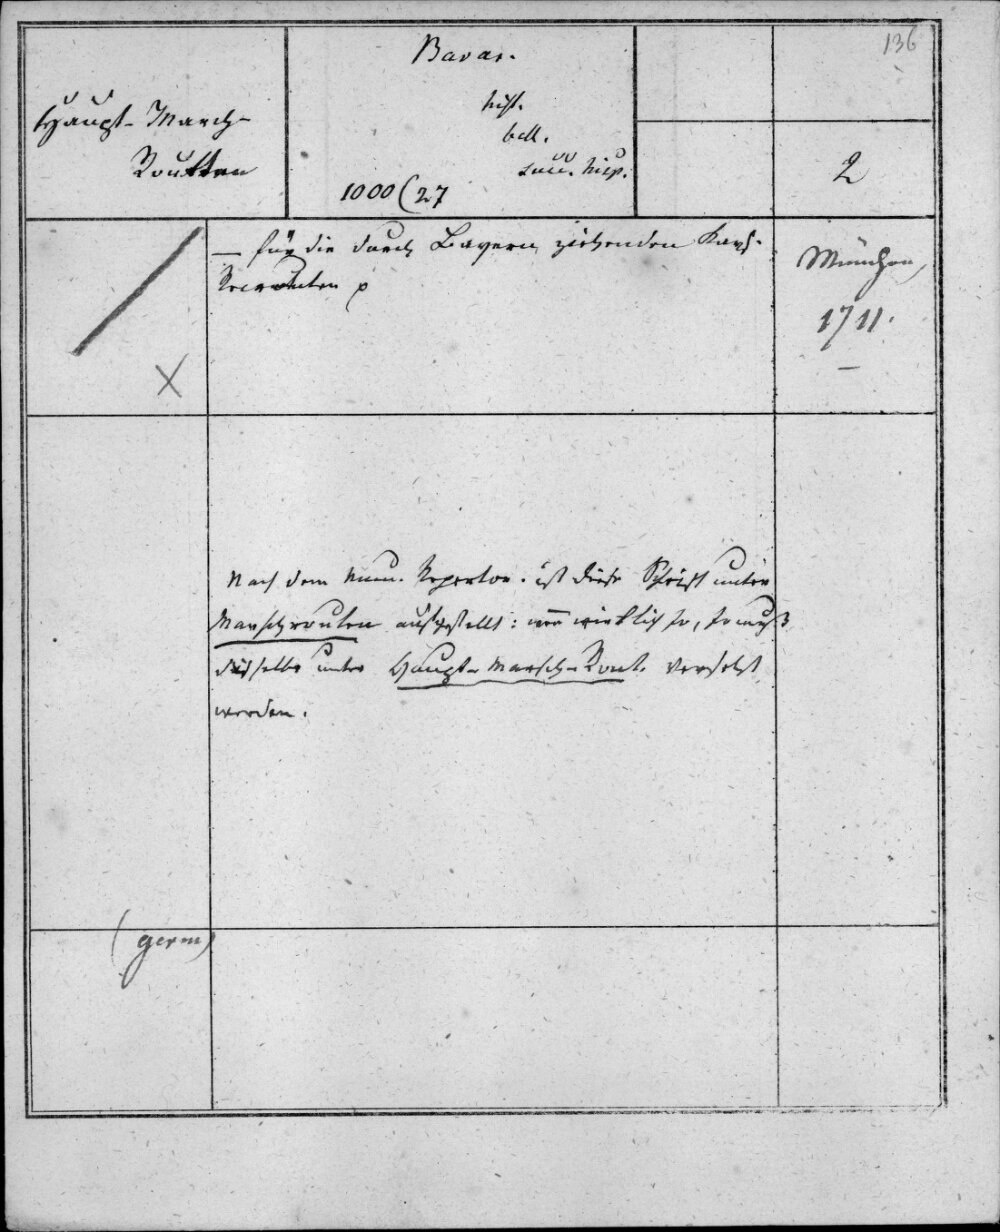 136
Haupt-March-
Routten
Bavar.
hist.
bell.
succ. hisp.
1000(27
2
— für die durch Bayern ziehenden Kays.
Recrouten p
München,
1711.
—
X
Nach dem Num. Repertor. ist diese Schrift unter
Marschrouten aufgestellt: wenn wirklich so, so muß
dieselbe unter Haupt-Marsch-Rout. versetzt
werden.
(germ)